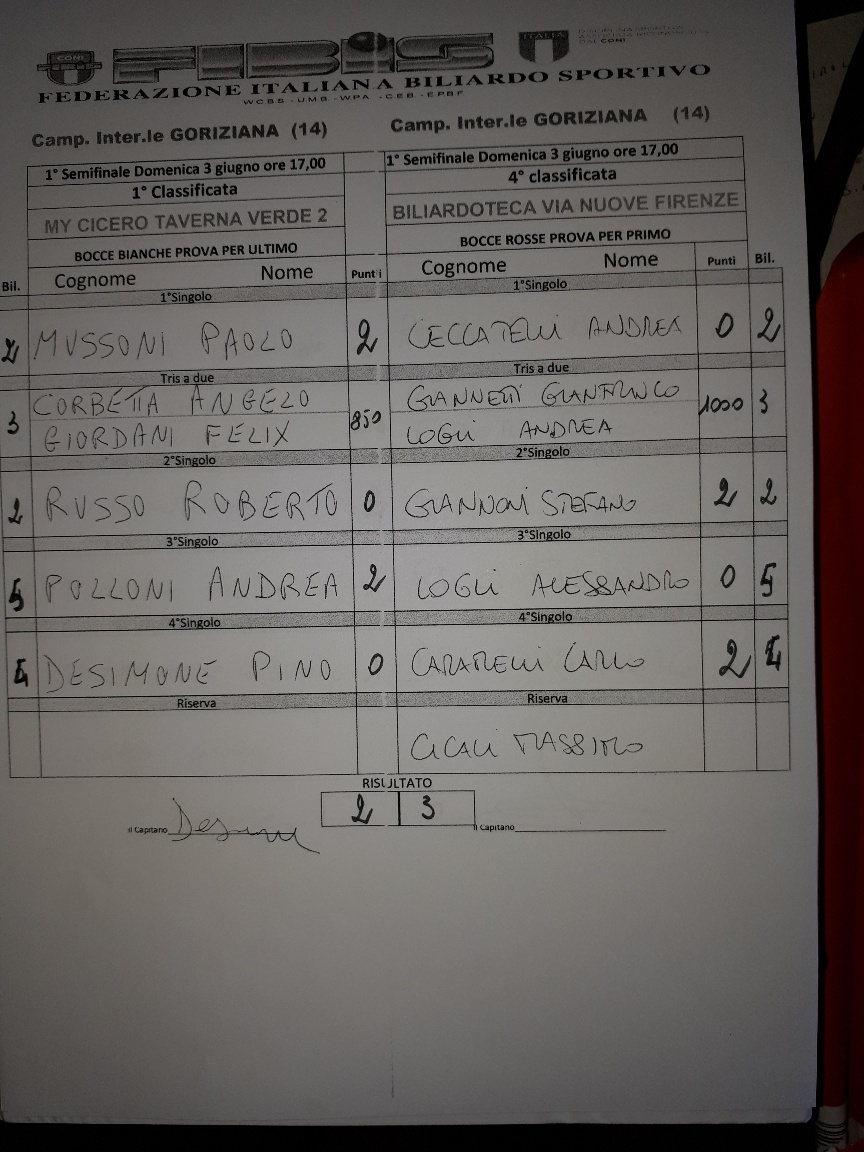 CONI FIBIS ITALIA
FEDERAZIONE ITALIANA BILIARDO SPORTIVO
WCBS - UMB - WPA - CEB - EPBF
Camp. Inter.le GORIZIANA (14) Camp. Inter.le GORIZIANA (14)
1° Semifinale Domenica 3 giugno ore 17,00 1° Semifinale Domenica 3 giugno ore 17,00
1° Classificata 4° classificata
MY CICERO TAVERNA VERDE 2 BILIARDOTECA VIA NUOVE FIRENZE
BOCCE BIANCHE PROVA PER ULTIMO BOCCE ROSSE PROVA PER PRIMO
Bil. Cognome Nome Punti Cognome Nome Punti Bil.
1°Singolo 1°Singolo
2 MUSSONI PAOLO 2 CECCATELLI ANDREA 0 2
Tris a due Tris a due
3 CORBETTA ANGELO 850 GIANNETTI GIANFRANCO 1000 3
GIORDANI FELIX LOGLI ANDREA
2°Singolo 2°Singolo
2 RUSSO ROBERTO 0 GIANNONI STEFANO 2 2
3°Singolo 3°Singolo
5 POLLONI ANDREA 2 LOGLI ALESSANDRO 0 5
4°Singolo 4°Singolo
DESIMONE PINO 0 CARATELLI CARLO 2
Riserva Riserva
CICALI MASSIMO
RISULTATO
2 3
Il Capitano Il Capitano